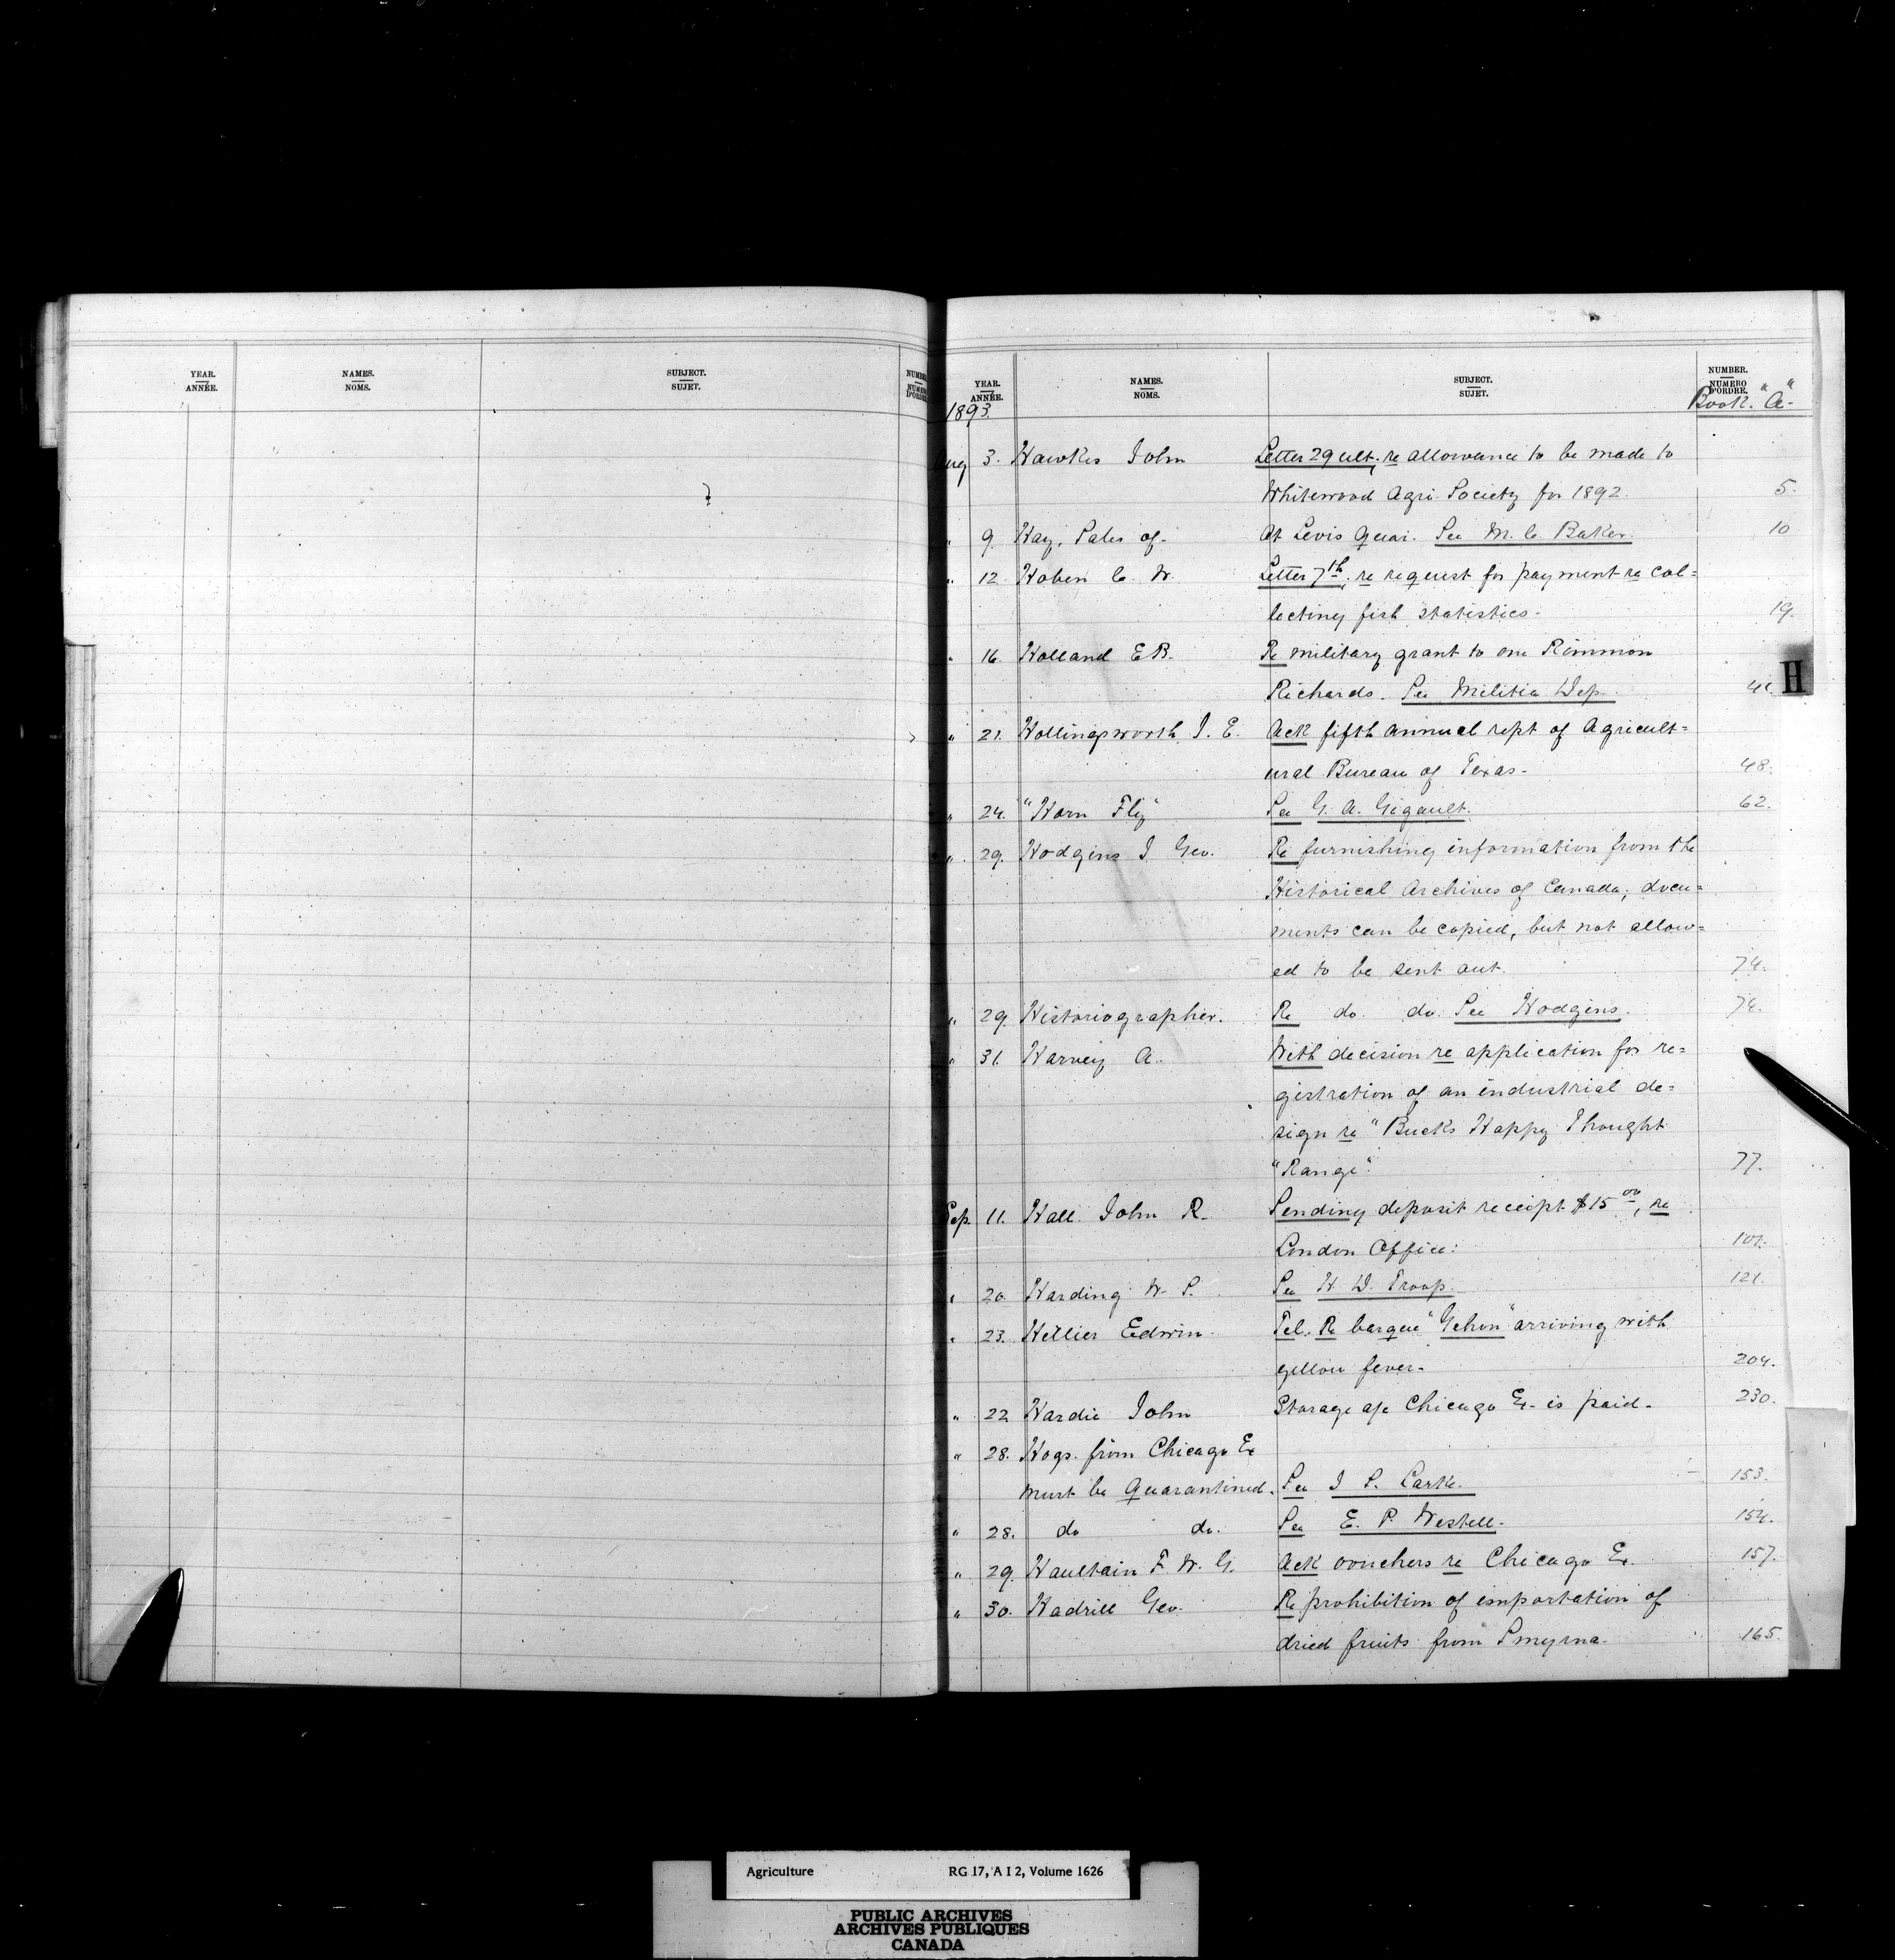 YEAR. NAMES. SUBJECT. NUMBER
ANNÉE. NOMS. SUJET. NUMÉRO D'ORDRE
YEAR. NAMES. SUBJECT. NUMBER.
ANNÉE. NOMS. SUJET. NUMÉRO D'ORDRE.
1893. Book "A"
Aug 3. Hawkes John Letter 29 ult, re allowance to be made to
Whitewood Agri. Society for 1892. 5.
" 9. Hay, Sales of. At Levis Quar. See M. C. Baker. 10
" 12. Hoben C. W. Letter 7th, re request for payment re col=
lecting fish statistics. 19.
" 16. Holland E B. Re military grant to one Rimmon
Richards. See Militia Dep.
" 21. Hollingsworth J. E. Ack fifth annual rept of Agricult=
ural Bureau of Texas. 48.
" 24. "Horn Fly" See G. A. Gigault. 62.
" 29. Hodgins J. Geo. Re furnishing information from the
Historical Archives of Canada; docu=
ments can be copied, but not allow=
ed to be sent out. 74.
" 29. Historiographer. Re do. do. See Hodgins. 74.
" 31. Harvey A. With decision re application for re=
gistration of an industrial de=
sign re "Bucks Happy Thought
"Range". 77.
Sep. 11. Hall John R. Sending deposit receipt $15 00, re
London Office. 101.
" 20. Harding W. S. See H. D. Troop. 121.
" 23. Hillier Edwin. Tel. Re barque "Gehon" arriving with
yellow fever. 204.
" 22. Hardie John Storage a/c Chicago Ex. is paid. 230.
" 28. Hogs. from Chicago Ex
must be Quarantined. See J. S. Larke. 153.
" 28. do do. See E. P. Westell. 154.
" 29. Haultain F. W. G. Ack vouchers re Chicago Ex. 157.
" 30. Hadrill Geo. Re prohibition of importation of
dried fruits from Smyrna. 165.
H
Agriculture RG 17, A I 2, Volume 1626
PUBLIC ARCHIVES
ARCHIVES PUBLIQUES
CANADA